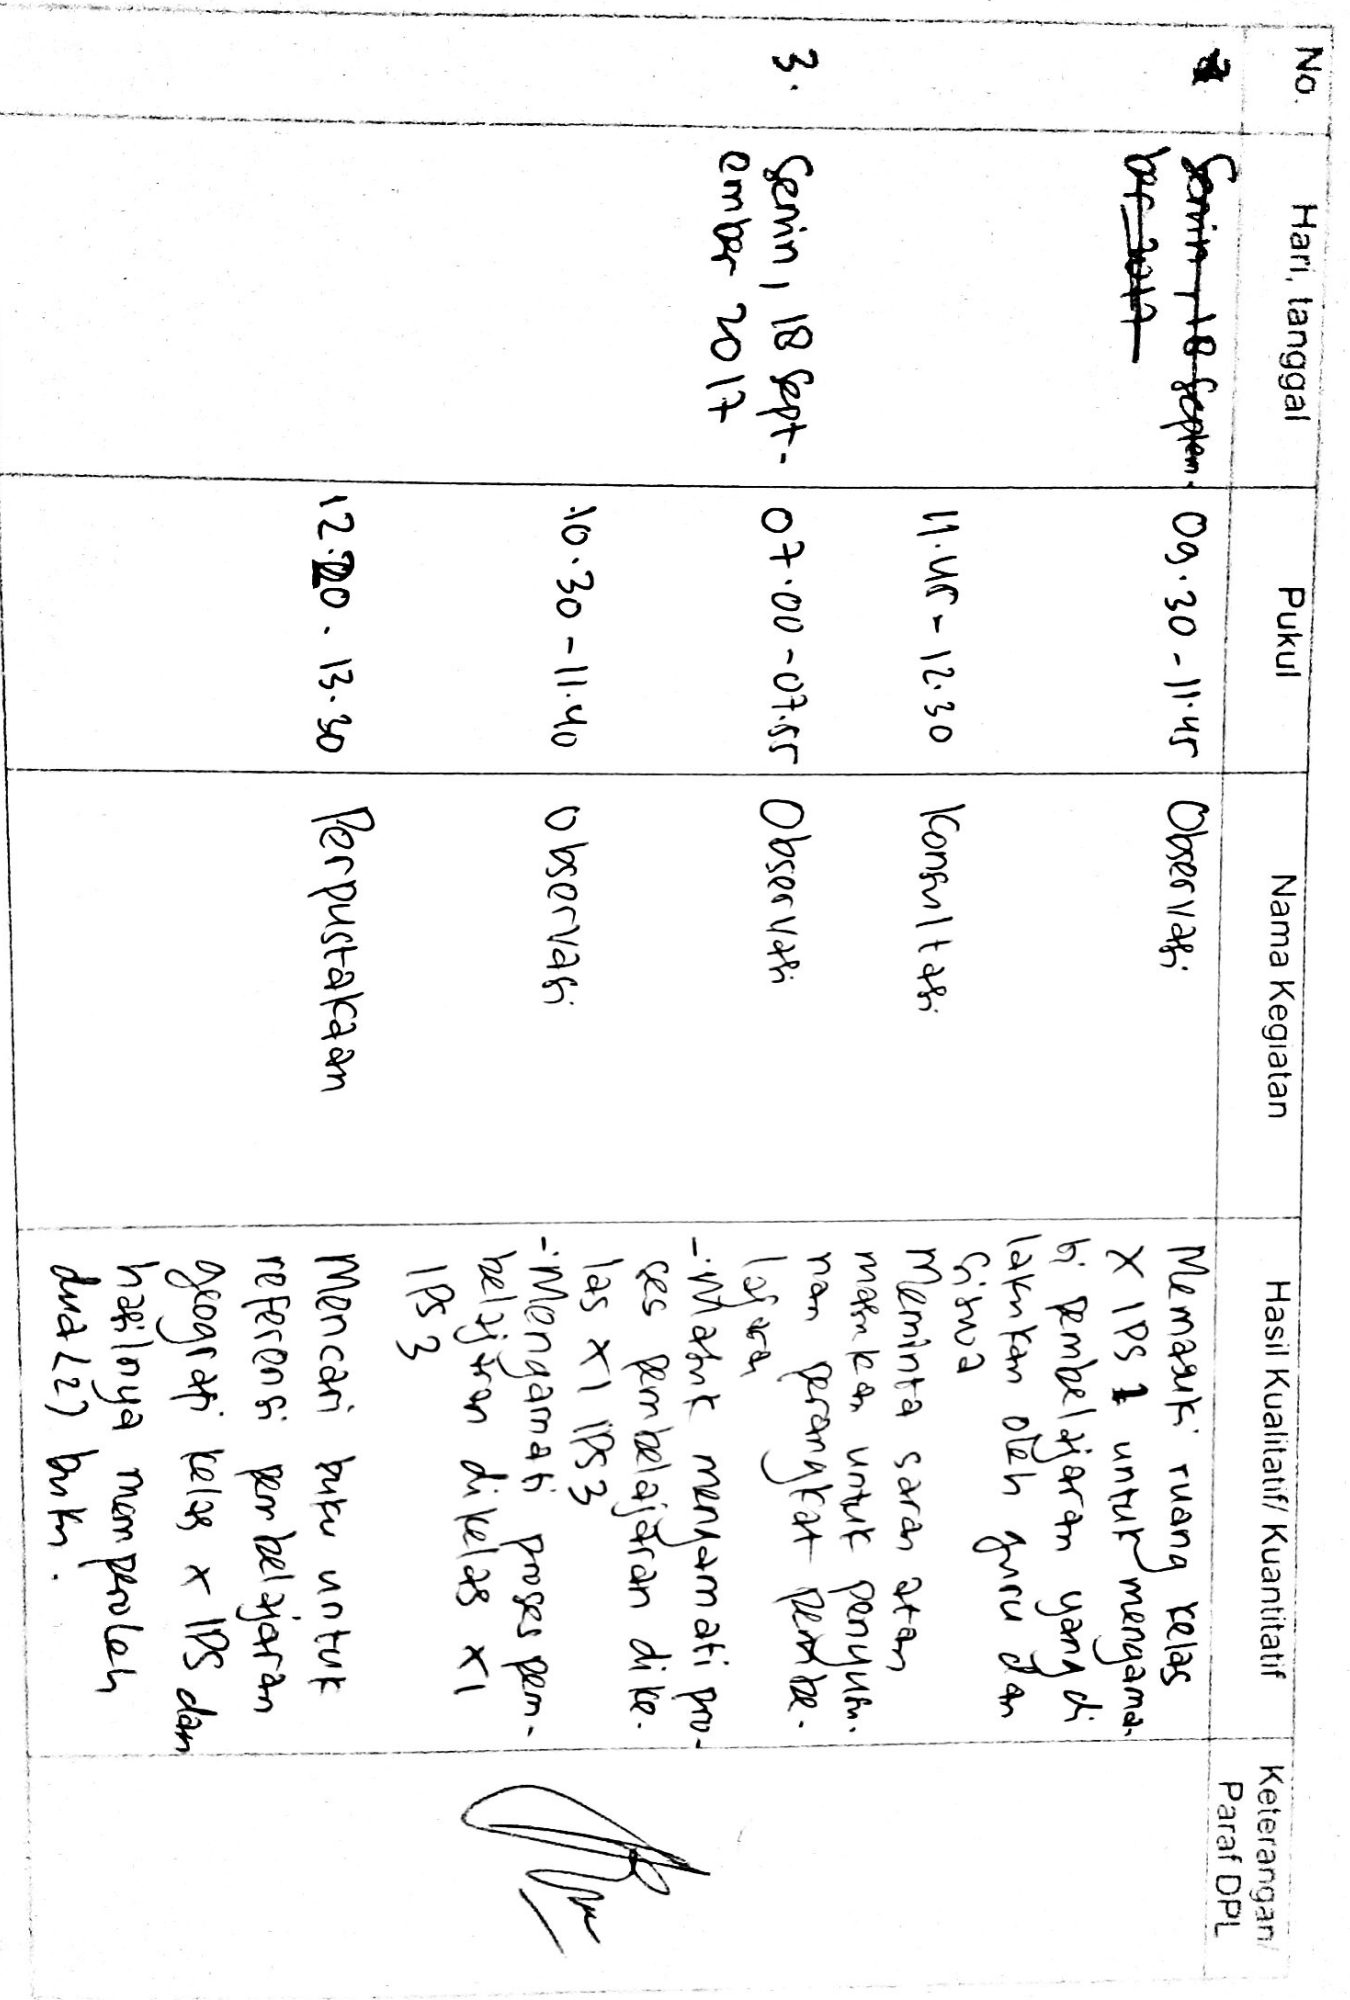 No. Hari, tanggal Pukul Nama Kegiatan Hasil Kualitatif/ Kuantitatif Keterangan/
Paraf DPL
Senin, 18 Septem- 09.30 - 11.45 Observasi Memasuki ruang kelas
ber 2017 X IPS 1 untuk mengama-
ti pembelajaran yang di
lakukan oleh guru dan
siswa
11.45 - 12.30 Konsultasi Meminta saran atau
masukan untuk penyusu-
nan perangkat pembe-
lajaran
3. Senin, 18 Sept- 07.00 - 07.55 Observasi - Masuk mengamati pro-
ember 2017 ses pembelajaran dike-
las XI IPS 3
10.30 - 11.40 Observasi - Mengamati proses pem-
belajaran dikelas XI
IPS 3
12.20 - 13.30 Perpustakaan Mencari buku untuk
referensi pembelajaran
geografi kelas X IPS dan
hasilnya memperoleh
dua (2) buku.